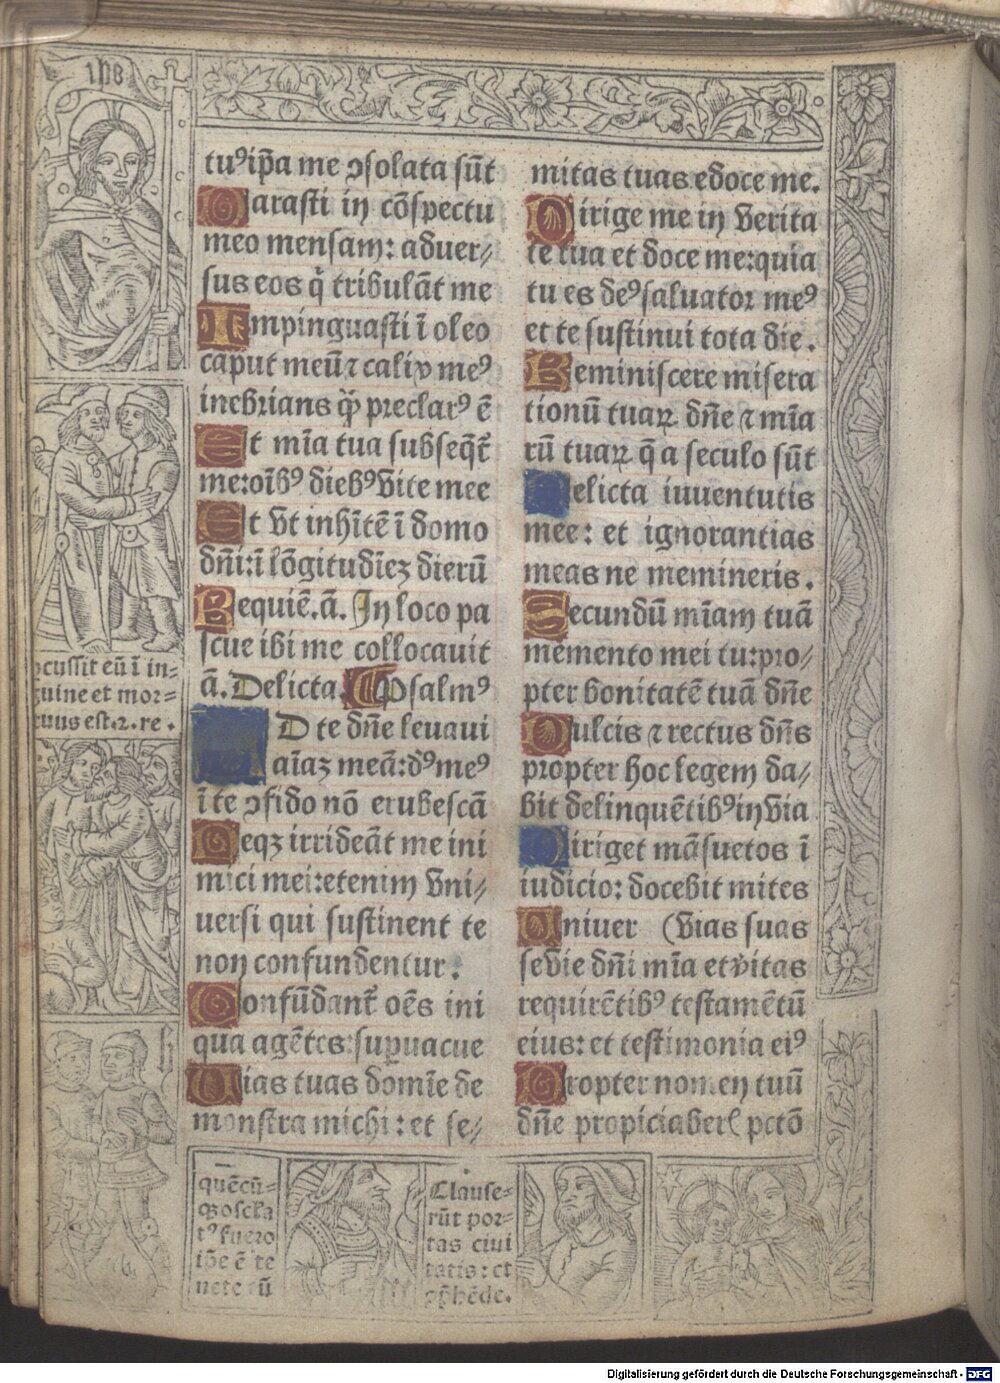 ihs
tuꝰ ip̄a me ↄsolata sūt
Parasti in cōspectu
meo mensam: aduer⸗
sus eos q̄ tribulāt me
Impinguasti ī oleo
caput meū ⁊ calix meꝰ
inebrians q̄ꝫ preclarꝰ ē
Et m̄ia tua subseq̄t̄
me: oībꝰ diebꝰ vite mee
Et vt inhītē ī domo
dn̄i: ī lōgitudīeꝫ dierū
Requiē. ā. In loco pa
scue ibi me collocauit
ā. Delicta. Psalmꝰ
AD te dn̄e leuaui
aīaꝫ meā: dꝰ meꝰ
ī te ↄfido nō erubescā
Neqꝫ irrideāt me ini
mici mei: etenim vni⸗
uersi qui sustinent te
non confundentur.
Confūdant̄ oēs ini
qua agētes: suꝑuacue
Uias tuas domīe de
monstra michi: et se⸗
mitas tuas edoce me.
Dirige me in verita
te tua et doce me: quia
tu es deꝰ saluator meꝰ
et te sustinui tota die.
Reminiscere misera
tionū tuaꝝ dn̄e ⁊ m̄ia
rū tuaꝝ q̄ a seculo sūt
Delicta iuuentutis
mee: et ignorantias
meas ne memineris.
Secundū m̄iam tuā
memento mei tu: pro⸗
pter bonitatē tuā dn̄e
Dulcis ⁊ rectus dn̄s
propter hoc legem da⸗
bit delinquētibꝰ in via
Diriget māsuetos ī
iudicio: docebit mites
Uniuer (vias suas
se vie dn̄i m̄ia et v̄itas
requirētibꝰ testamētū
eius: et testimonia eiꝰ
Propter nomen tuū
dn̄e propiciaber̄ pctō
ↄcussit eū ī in⸗
guine et mor⸗
tuus est. 2. re.
quēcū⸗
qꝫ oscla
tꝰ fuero
ip̄e ē te
nete eū
Clause⸗
rūt por⸗
tas ciui
tatis: et
Digitalisierung gefördert durch die Deutsche Forschungsgemeinschaft - DFG